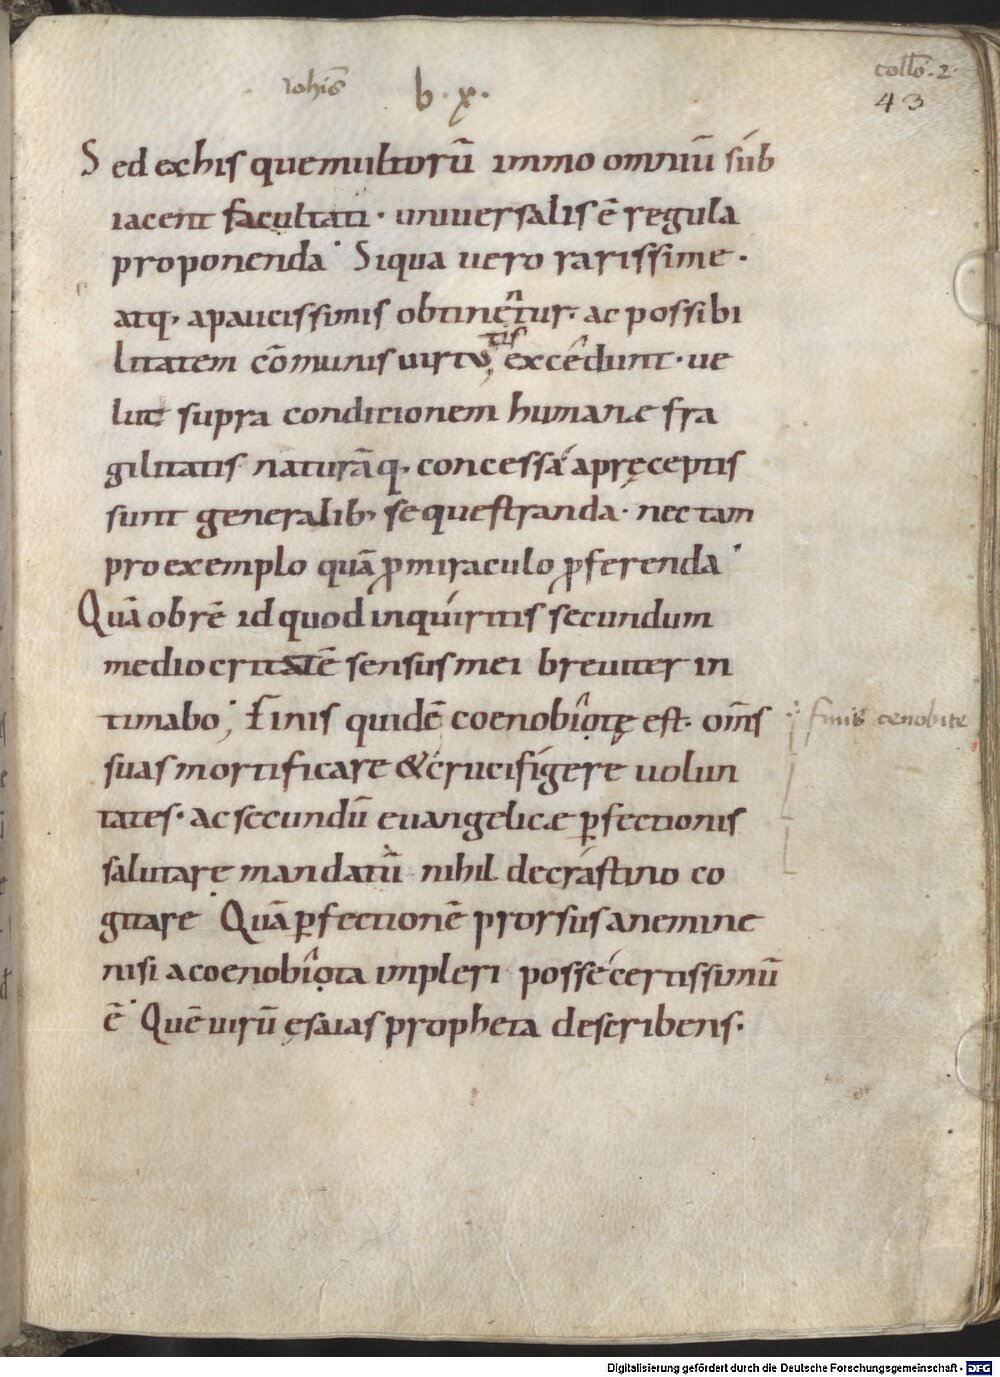 ioħis b. x. coll̄o. 2.
43
Sed ex his que multorū immo omniū sub
iacent facultati. uniuersalis ē regula
proponenda. Siqua uero rarissime.
atq; apaucissimis obtinetur. ac possibi
litatem cōmunis uirtutis excedunt. ue
lut supra condicionem humanæ fra
gilitatis naturāq; concessa apręceptis
sunt generalib; sequestranda. nec tam
pro exemplo quā ꝓmiraculo ꝓferenda.
Quā obrē id quod inquiritis secundum
mediocritatē sensus mei breuiter in
timabo; Finis quidē coenobiotę est. om̄s
suas mortificare & crucifigere uolun
tates. ac secundū euangelicæ ꝑfectionis
salutare mandatū nihil decrastino co
gitare. Quā ꝑfectionē prorsus anemine
nisi acoenobiota impleri posse certissimū
ē. Quē uirū ęsaias propheta describens.
finis cenobite
Digitalisierung gefördert durch die Deutsche Forschungsgemeinschaft - DFG